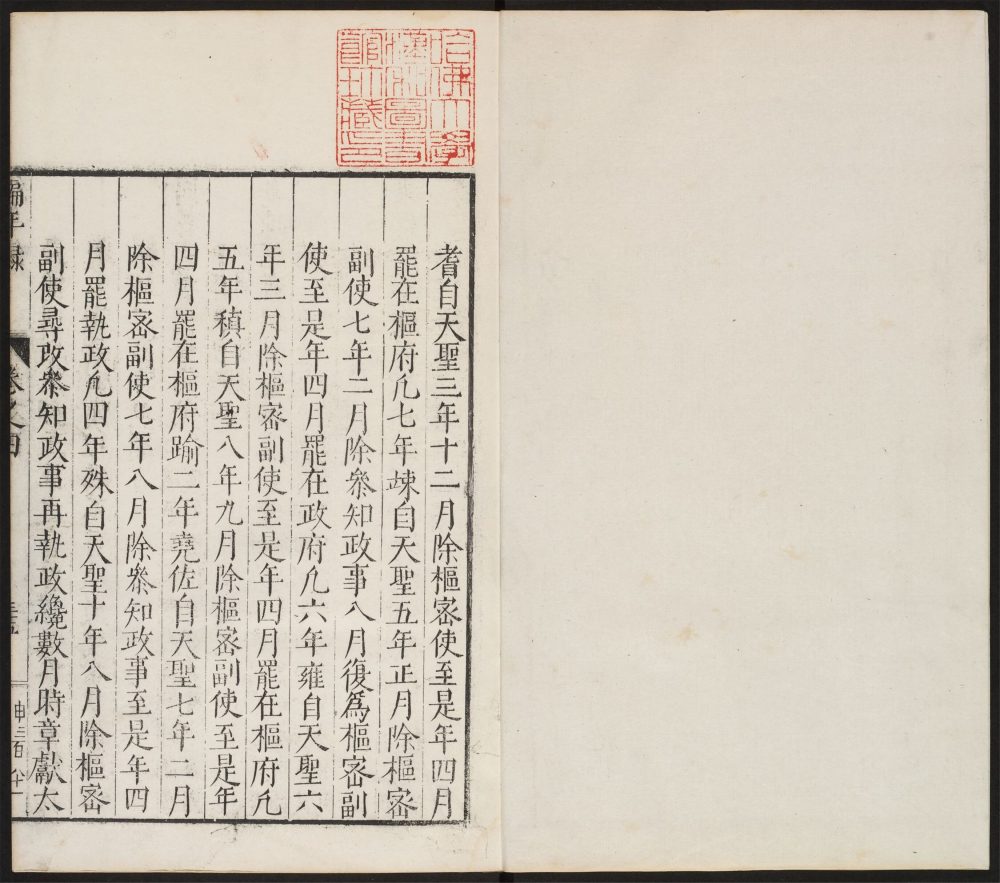 哈佛大學
漢和圖書
館珍藏印
耆自天聖三年十二月除樞密使至是年四月
罷在樞府凡七年竦自天聖五年正月除樞密
副使七年二月除叅知政事八月復爲樞密副
使至是年四月罷在政府凡六年雍自天聖六
年三月除樞密副使至是年四月罷在樞府凡
五年稹自天聖八年九月除樞密副使至是年
四月罷在樞府踰二年堯佐自天聖七年二月
除樞密副使七年八月除叅知政事至是年四
月罷執政凡四年殊自天聖十年八月除樞密
副使尋改叅知政事再執政纔數月時章獻太
編年錄 卷之四